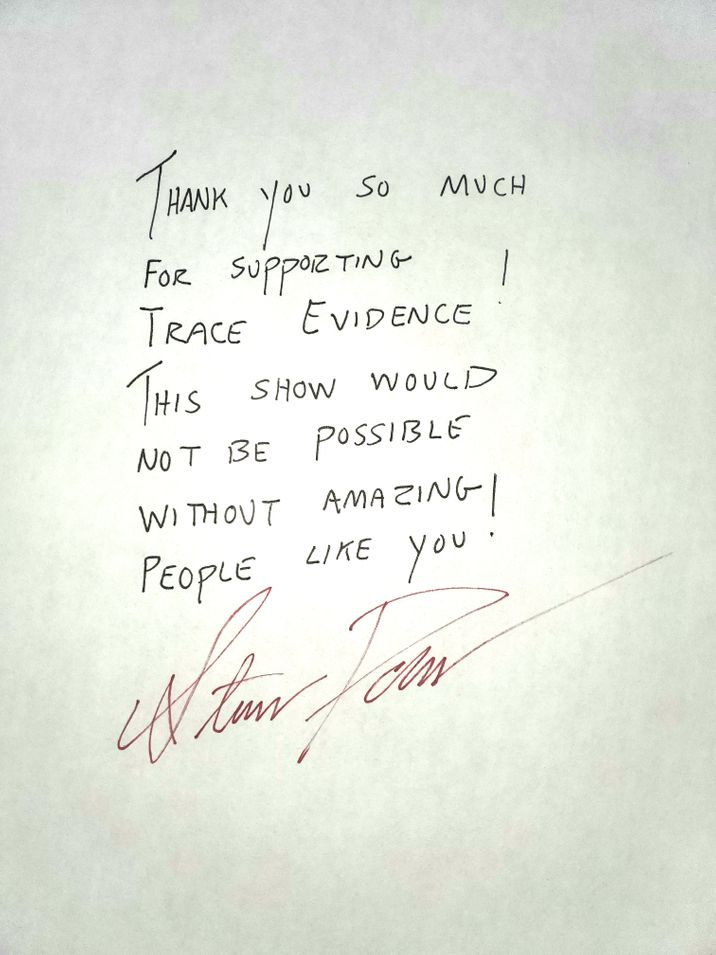 THANK YOU SO MUCH
FOR SUPPORTING
TRACE EVIDENCE!
THIS SHOW WOULD
NOT BE POSSIBLE
WITHOUT AMAZING
PEOPLE LIKE YOU!